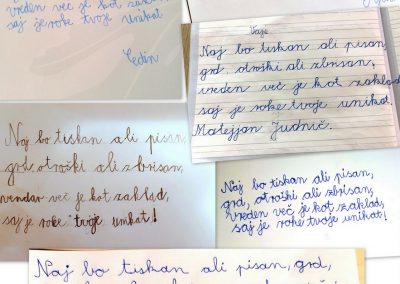 vreden več je kot zaklad,
saj je roke tvoje unikat
Vaje
Naj bo tiskan ali pisan,
grd, otroški ali zbrisan,
vreden več je kot zaklad
saj je roke tvoje unikat.
Matejjan Judnič.
Naj bo tiskan ali pisan,
grd, otroški ali zbrisan,
vendar več je kot zaklad,
saj je roke tvoje unikat!
Naj bo tiskan ali pisan,
grd, otroški ali zbrisan,
vreden več je kot zaklad,
saj je roke tvoje unikat!
Naj bo tiskan ali pisan, grd,